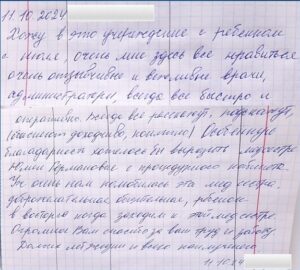 11.10.2024
Хожу в это учреждение с ребенком
с июля, очень мне здесь все нравиться
очень отзывчивые и вежливые врачи,
администраторы, всегда все быстро и
оперативно. Всегда все расскажут, подскажут,
доходчиво, понятно) Отдельную
благодарность хотелось бы выразить медсестре
Юлии с процедурного кабинета.
Уж очень нам полюбилась эта мед сестра,
доброжелательная, обаятельная, ребенок
в восторге когда заходим к этой мед сестре.
Огромное Вам спасибо за ваш труд и заботу
Долгих лет жизни и всего наилучшего
11.10.2024